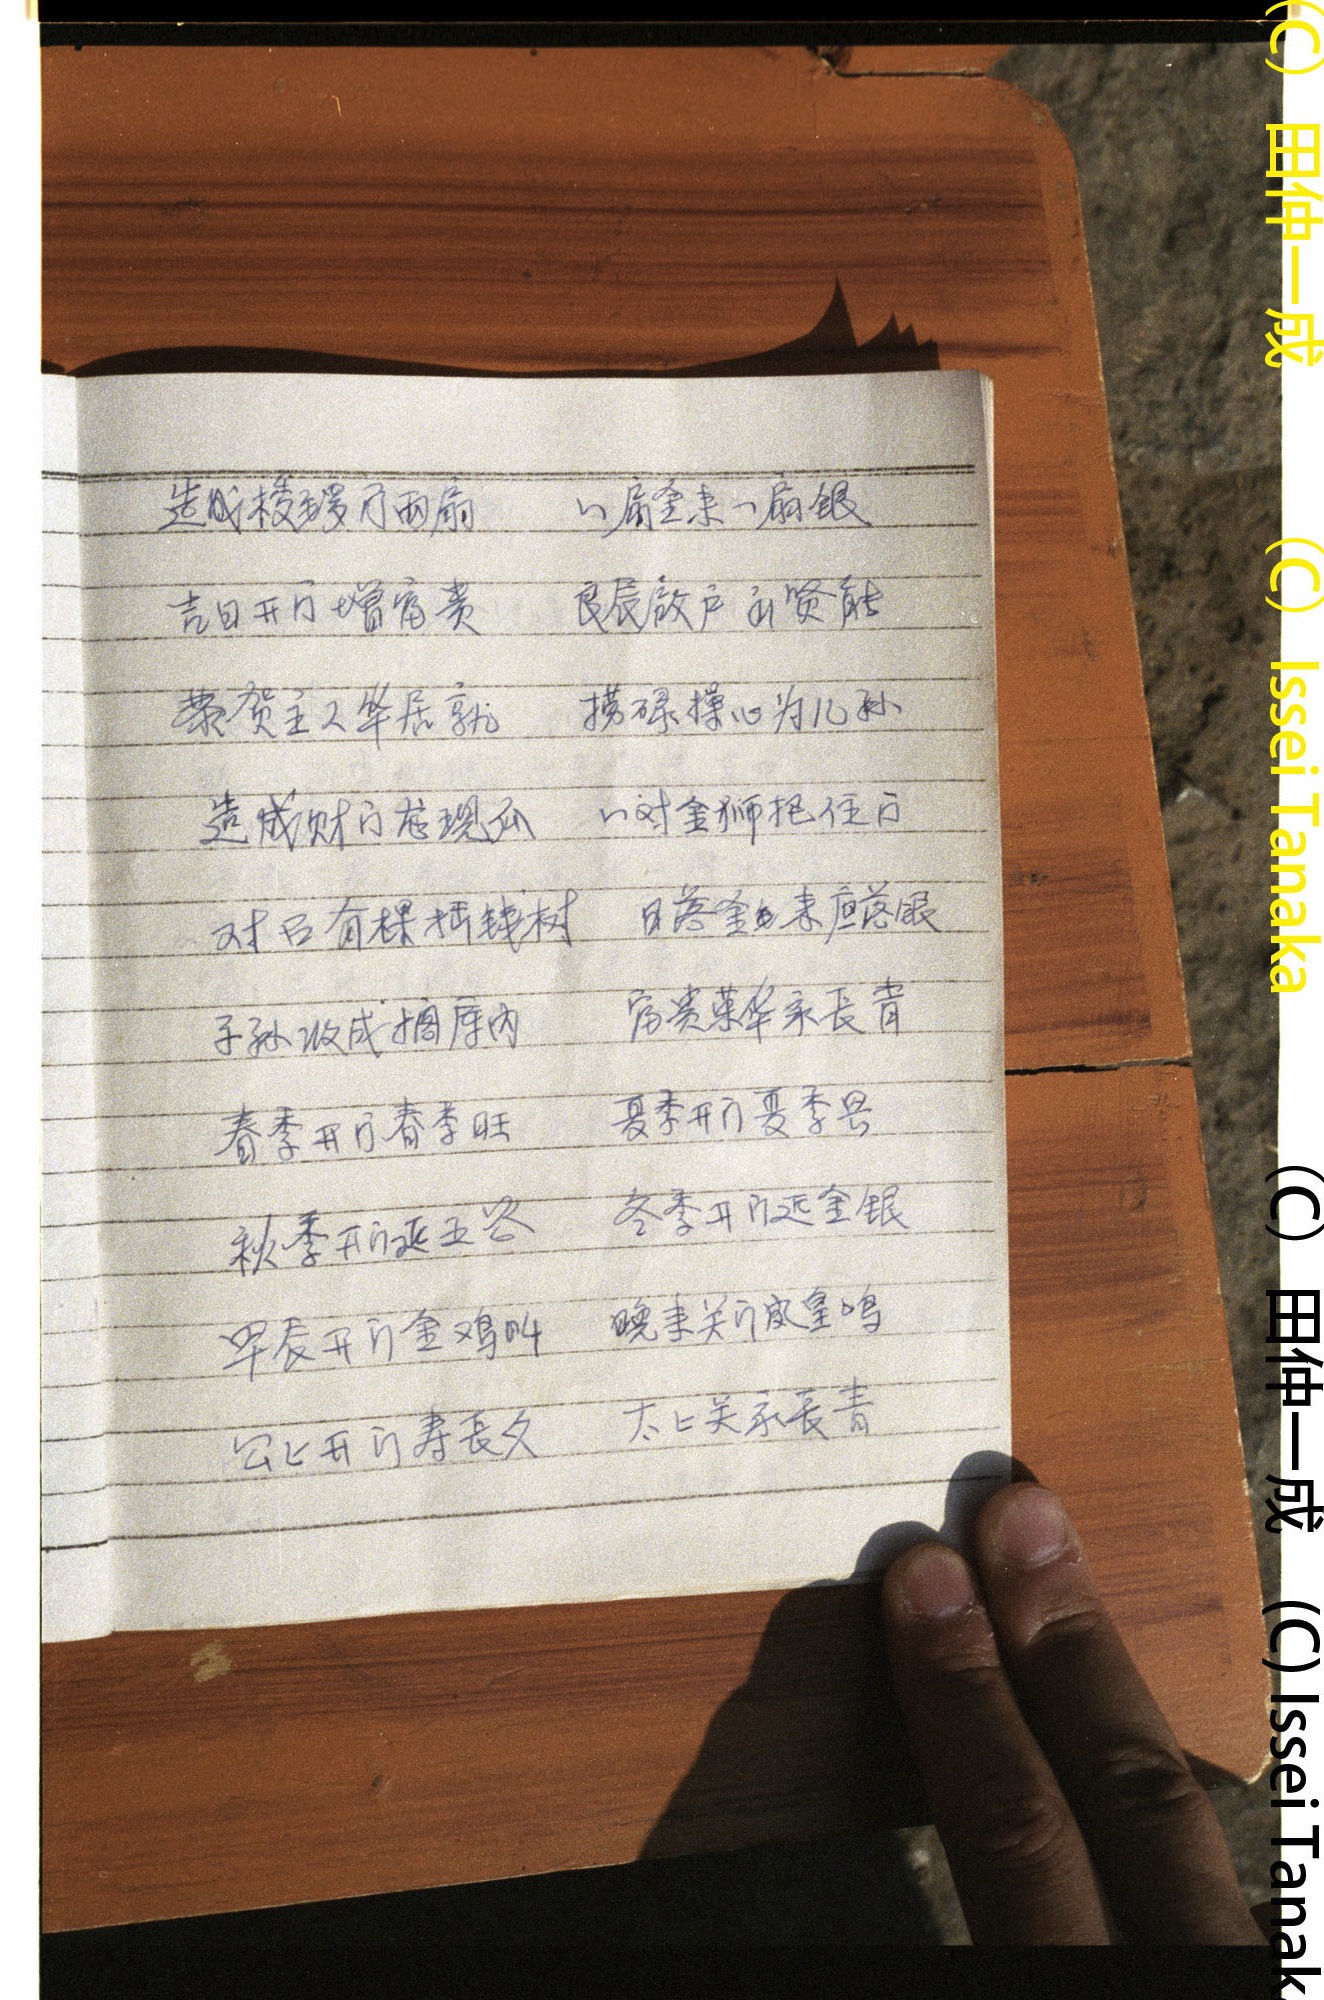 造成梭椤门两扇 一扇金来一扇银
吉日开门增富贵 良辰啟户出贤能
恭贺主人华居就 操心为儿孙
造成财门 一对金狮把住门
对 有棵摇钱树 日落金来 落银
子孙收成 库内 富贵荣华永長青
春季开门春季旺 夏季开门夏季
秋季开门 五谷 冬季开门 金银
早辰开门金鸡叫 晚来关门凤皇鸣
公公开门寿長久 太 关 永長青
(C) 田仲一成 (C) Issei Tanaka
(C) 田仲一成 (C) Issei Tanak